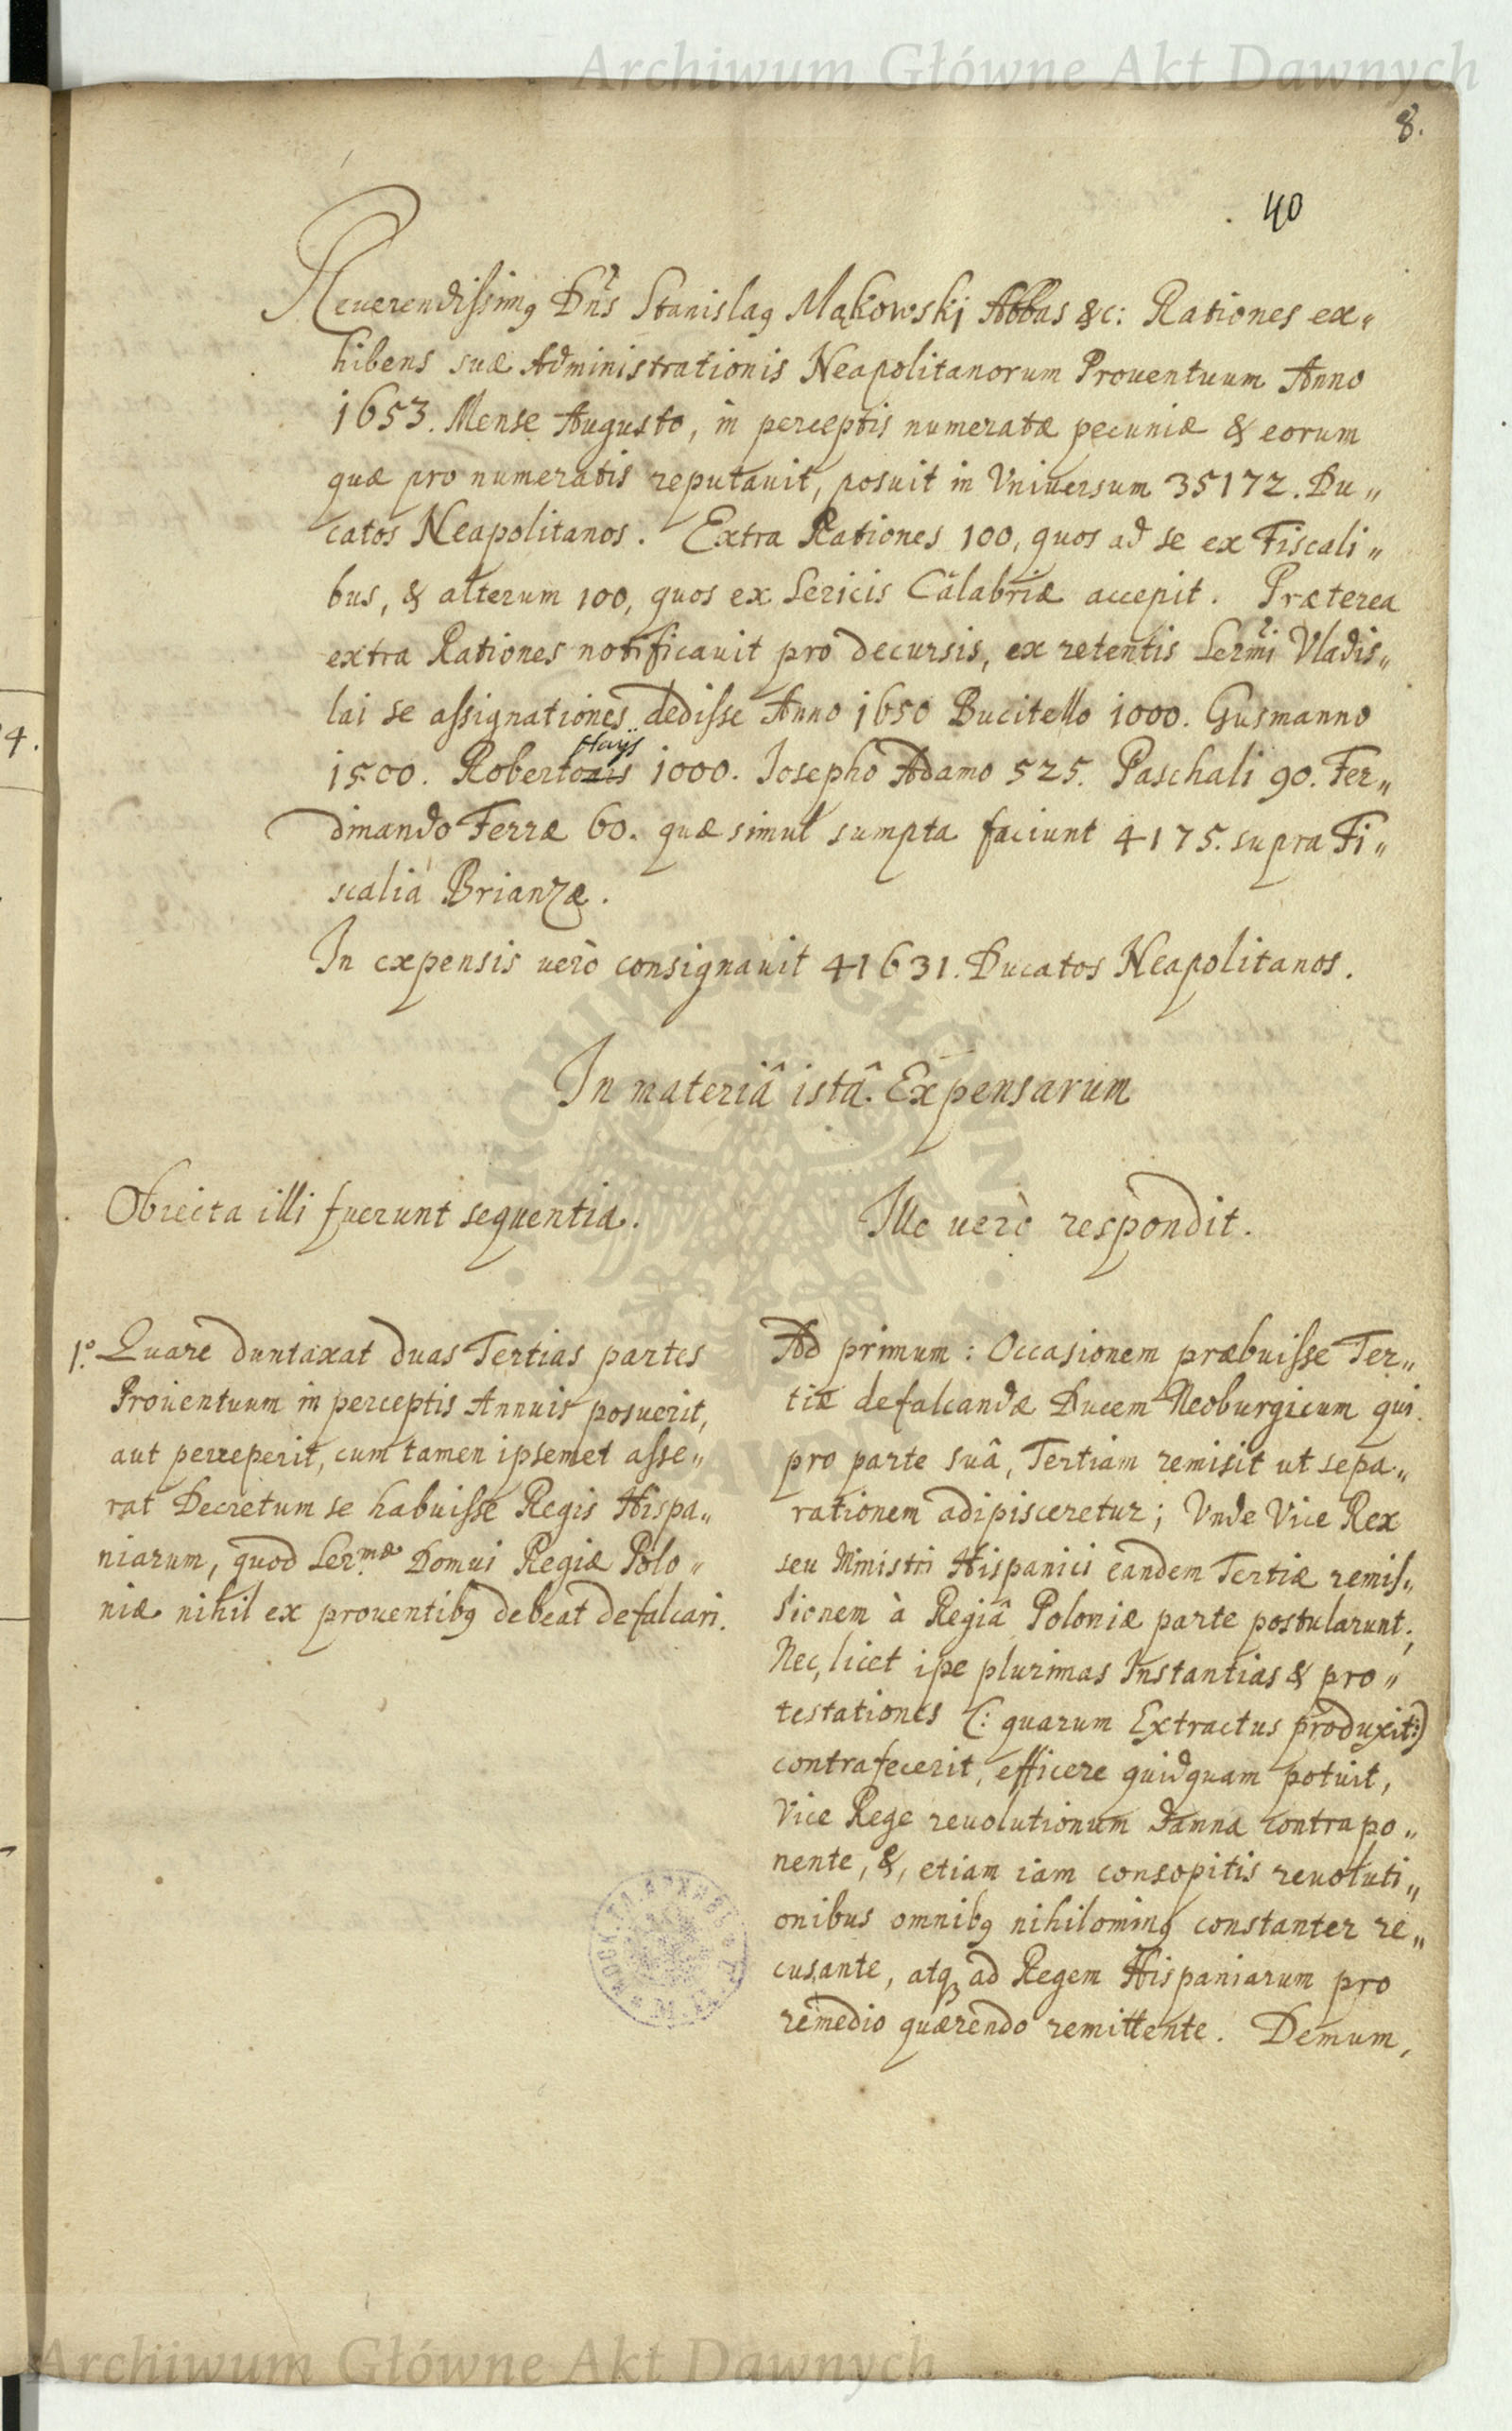 Archiwum Główne Akt Dawnych
8.
40
Reuerendissimꝯ Dn̄s Stanislaꝯ Mąkowski Abbas &c: Rationes ex„
hibens suæ Administrationis Neapolitanorum Prouentuum Anno
1653. Mense Augusto, in perceptis numeratæ pecuniæ & eorum
quæ pro numeratis reputauit, posuit in Vniuersum 35172. Du„
catos Neapolitanos. Extra Rationes 100, quos ad se ex Fiscali„
bus, & alterum 100, quos ex Sericis Calabriæ accepit. Præterea
extra Rationes notificauit pro decursis, ex retentis Serm̄i Vladis„
lai se assignationes dedisse Anno 1650 Bucitello 1000. Gusmanno
Hayß
1500. Roberto 1000. Josepho Adamo 525. Paschali 90. Fer„
dinando Ferræ 60. quæ simul sumpta faciunt 4175. supra Fi„
scalia Brianzæ.
In expensis uerò consignauit 41631. Ducatos Neapolitanos.
In materiâ istâ Expensarum
Obiecta illi fuerunt sequentia.
Ille uerò respondit.
1.º Quare duntaxat duas Tertias partes
Prouentuum in perceptis Annuis posuerit,
aut perceperit, cum tamen ipsemet asse„
rat Decretum se habuisse Regis Hispa„
niarum, quod Ser.mæ Domui Regiæ Polo„
niæ nihil ex prouentibꝯ debeat defalcari.
Ad primum: Occasionem præbuisse Ter„
tiæ defalcandæ Ducem Neoburgicum qui
pro parte suâ, Tertiam remisit ut sepa„
rationem adipisceretur; Vnde Vice Rex
seu Ministri Hispanici eandem Tertiæ remis„
sionem à Regiâ Poloniæ parte postularunt;
Nec, licet ipe plurimas Instantias & pro„
testationes (: quarum Extractus produxit:)
contrafecerit, efficere quidquam potuit,
Vice Rege reuolutionum damna contrapo„
nente, &, etiam iam consopitis reuoluti„
onibus omnibꝯ nihilominꝯ constanter re„
cusante, atqꝫ ad Regem Hispaniarum pro
remedio quærendo remittente. Demum,
Archiwum Główne Akt Dawnych